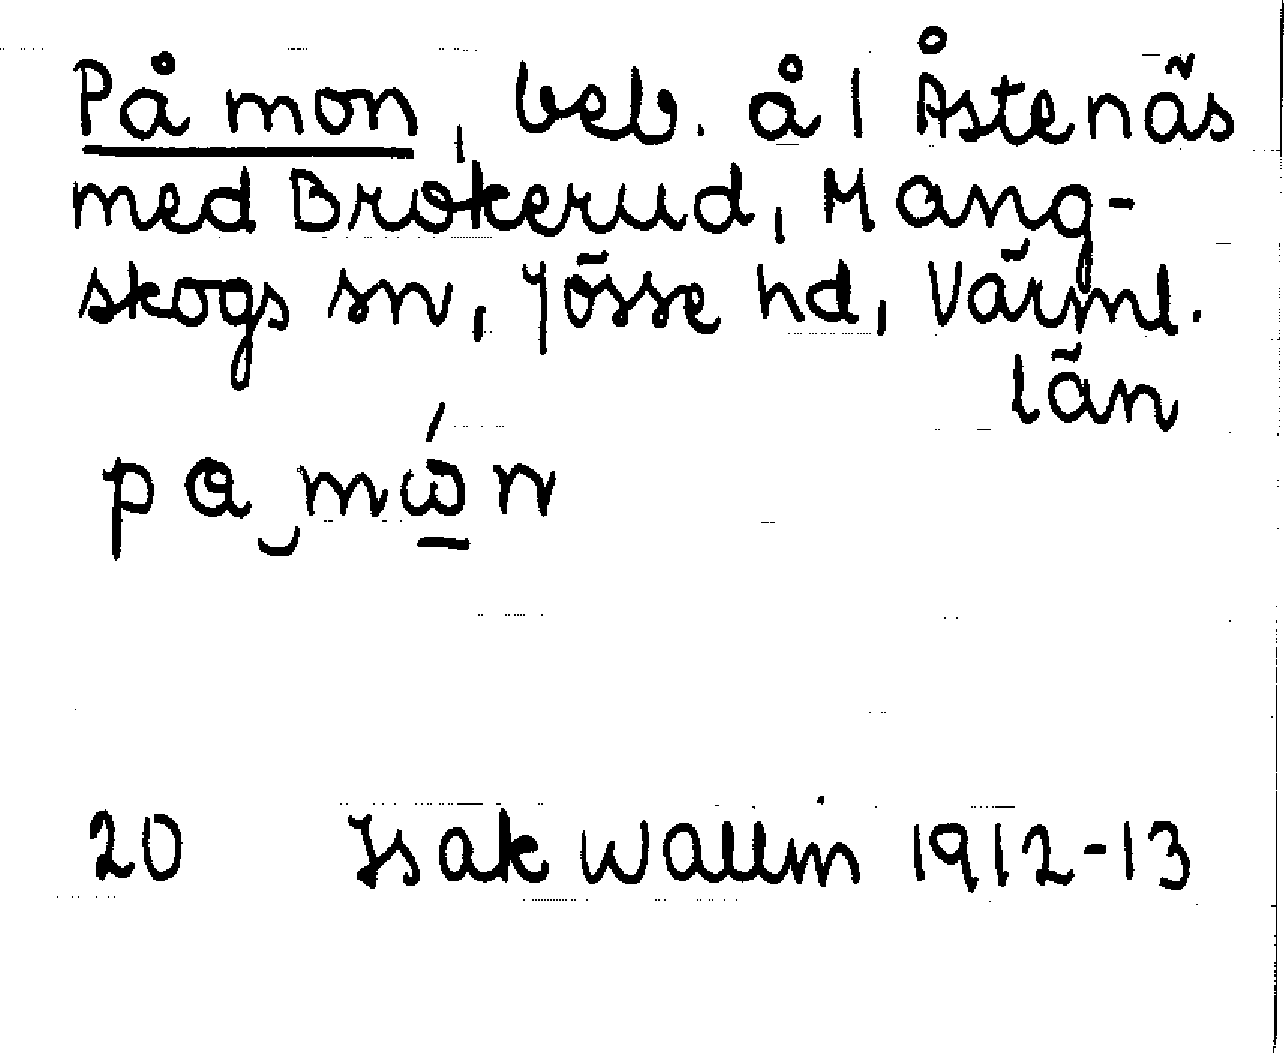 På mon, beb. å 1 Åstenäs
med Brokerud, Mang-
skogs sn, Jösse hd, Värml.
län
pa mώn
20 Isak Wallin 1912-13